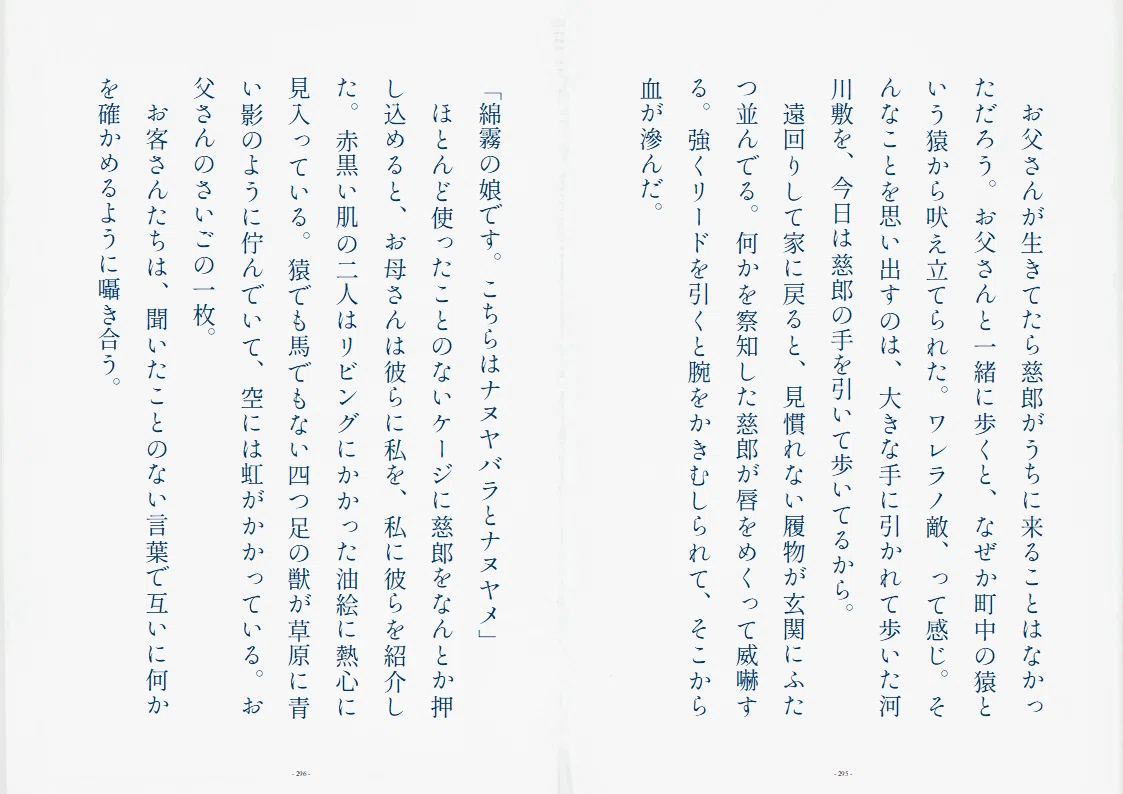 お父さんが生きてたら慈郎がうちに来ることはなかっ
ただろう。お父さんと一緒に歩くと、なぜか町中の猿と
いう猿から吠え立てられた。ワレラノ敵、って感じ。そ
んなことを思い出すのは、大きな手に引かれて歩いた河
川敷を、今日は慈郎の手を引いて歩いてるから。
遠回りして家に戻ると、見慣れない履物が玄関にふた
つ並んでる。何かを察知した慈郎が唇をめくって威嚇す
る。強くリードを引くと腕をかきむしられて、そこから
血が滲んだ。
- 295 -
「綿霧の娘です。こちらはナヌヤバラとナヌヤメ」
ほとんど使ったことのないケージに慈郎をなんとか押
し込めると、お母さんは彼らに私を、私に彼らを紹介し
た。赤黒い肌の二人はリビングにかかった油絵に熱心に
見入っている。猿でも馬でもない四つ足の獣が草原に青
い影のように佇んでいて、空には虹がかかっている。お
父さんのさいごの一枚。
お客さんたちは、聞いたことのない言葉で互いに何か
を確かめるように囁き合う。
- 296 -